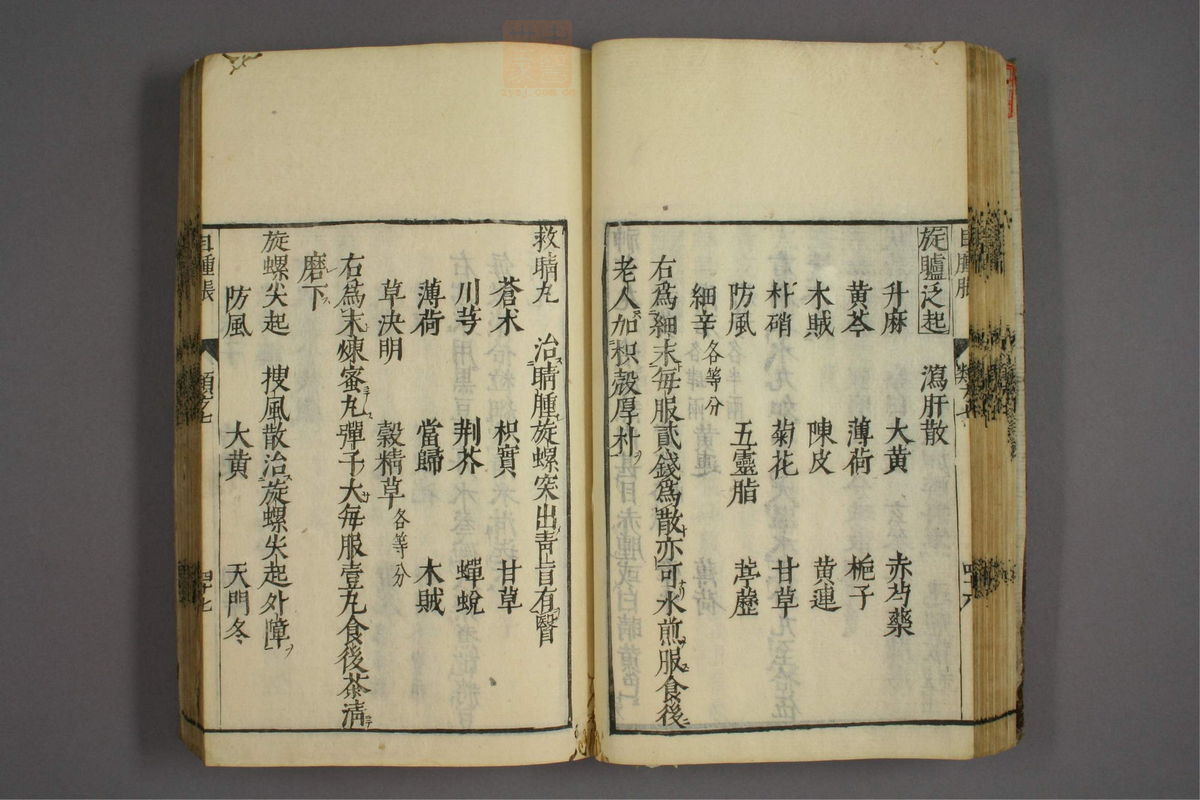 旋臚泛起　瀉肝散
升麻　大黃　赤芍藥
黃芩　薄荷　梔子
木賊　陳皮　黃連
朴硝　菊花　甘草
防風　五靈脂　葶藶
細辛各等分
右爲細末每服貳錢爲散亦可水煎服食後
老人加枳殼厚朴
救睛丸　治睛腫旋螺突出靑盲有瞖
蒼朮　枳實　甘草
川芎　荆芥　蟬蛻
薄荷　當歸　木賊
草決明　穀精草各等分
右爲末煉蜜丸彈子大每服壹丸食後茶淸
磨下
旋螺尖起　搜風散治旋螺尖起外障
防風　大黃　天門冬
目腫脹　類之七　四十七